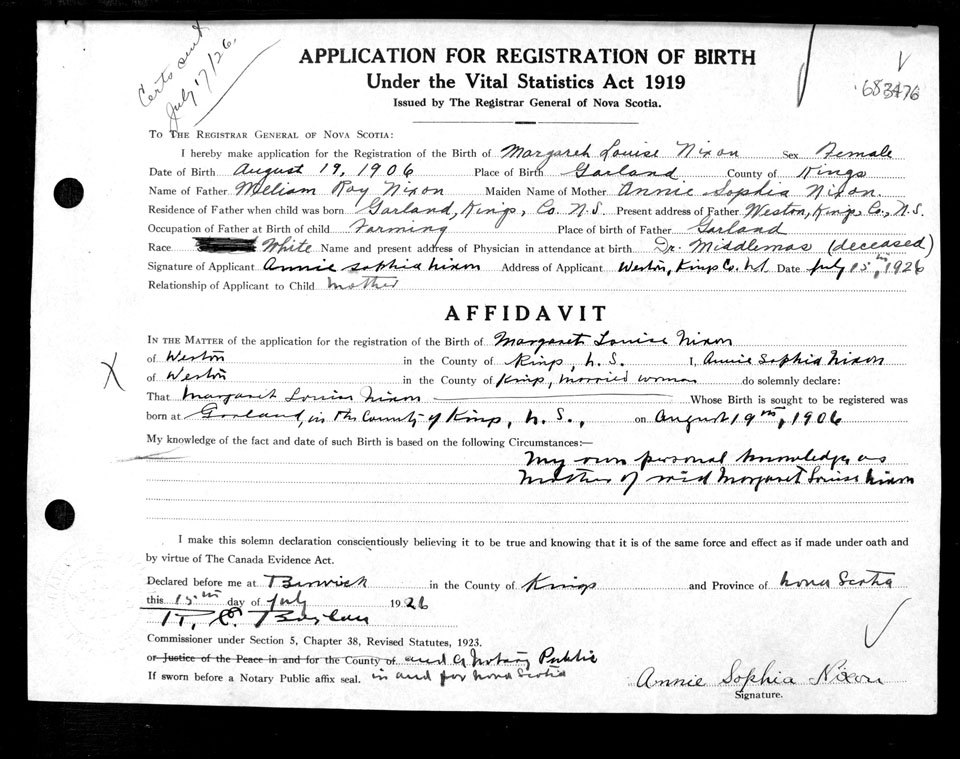 Certs sent
July 17/26.
683476
APPLICATION FOR REGISTRATION OF BIRTH
Under the Vital Statistics Act 1919
Issued by The Registrar General of Nova Scotia.
TO THE REGISTRAR GENERAL OF NOVA SCOTIA:
I hereby make application for the Registration of the Birth of Margaret Louise Nixon Sex Female
Date of Birth August 19, 1906 Place of Birth Garland County of Kings
Name of Father William Roy Nixon Maiden Name of Mother Annie Sophia Nixon
Residence of Father when child was born Garland, Kings, Co. N.S. Present address of Father Weston, Kings, Co., N.S.
Occupation of Father at Birth of child Farming Place of birth of Father Garland
Race White Name and present address of Physician in attendance at birth Dr. Middlemas (deceased)
Signature of Applicant Annie Sophia Nixon Address of Applicant Weston, Kings Co. N.S Date July 15th, 1926
Relationship of Applicant to Child Mother
AFFIDAVIT
IN THE MATTER of the application for the registration of the Birth of Margaret Louise Nixon
of Weston in the County of Kings, N.S. I, Annie Sophia Nixon
of Weston in the County of Kings, married woman do solemnly declare:
That Margaret Louise Nixon Whose Birth is sought to be registered was
born at Garland, in the County of Kings, N.S., on August 19th, 1906
My knowledge of the fact and date of such Birth is based on the following Circumstances:—
My own personal knowledge as
Mother of said Margaret Louise Nixon
I make this solemn declaration conscientiously believing it to be true and knowing that it is of the same force and effect as if made under oath and
by virtue of The Canada Evidence Act.
Declared before me at Berwick in the County of Kings and Province of Nova Scotia
this 15th day of July 1926
Commissioner under Section 5, Chapter 38, Revised Statutes, 1923.
or Justice of the Peace in and for the County of and a Notary Public
If sworn before a Notary Public affix seal. in and for Nova Scotia
Annie Sophia Nixon
Signature.